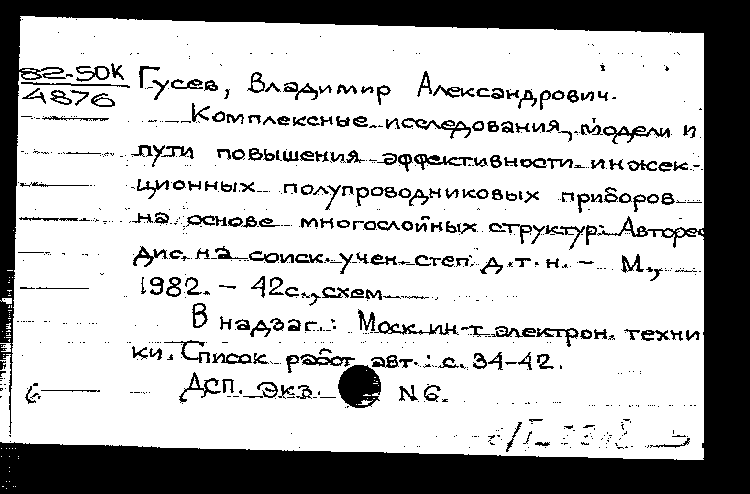 82-5DK
4876
Гусев, Владимир Александрович.
Комплексные исследования, модели и
пути повышения эффективности инжек-
ционных полупроводниковых приборов
на основе многослойных структур: Автореф
дис. на соиск. учен. степ. д.т.н. - М.,
1982. - 42с., схем
В надзаг.: Моск. ин-т электрон. техни
ки. Список работ авт.: с. 34-42.
Дсп. Экз. N6.
6